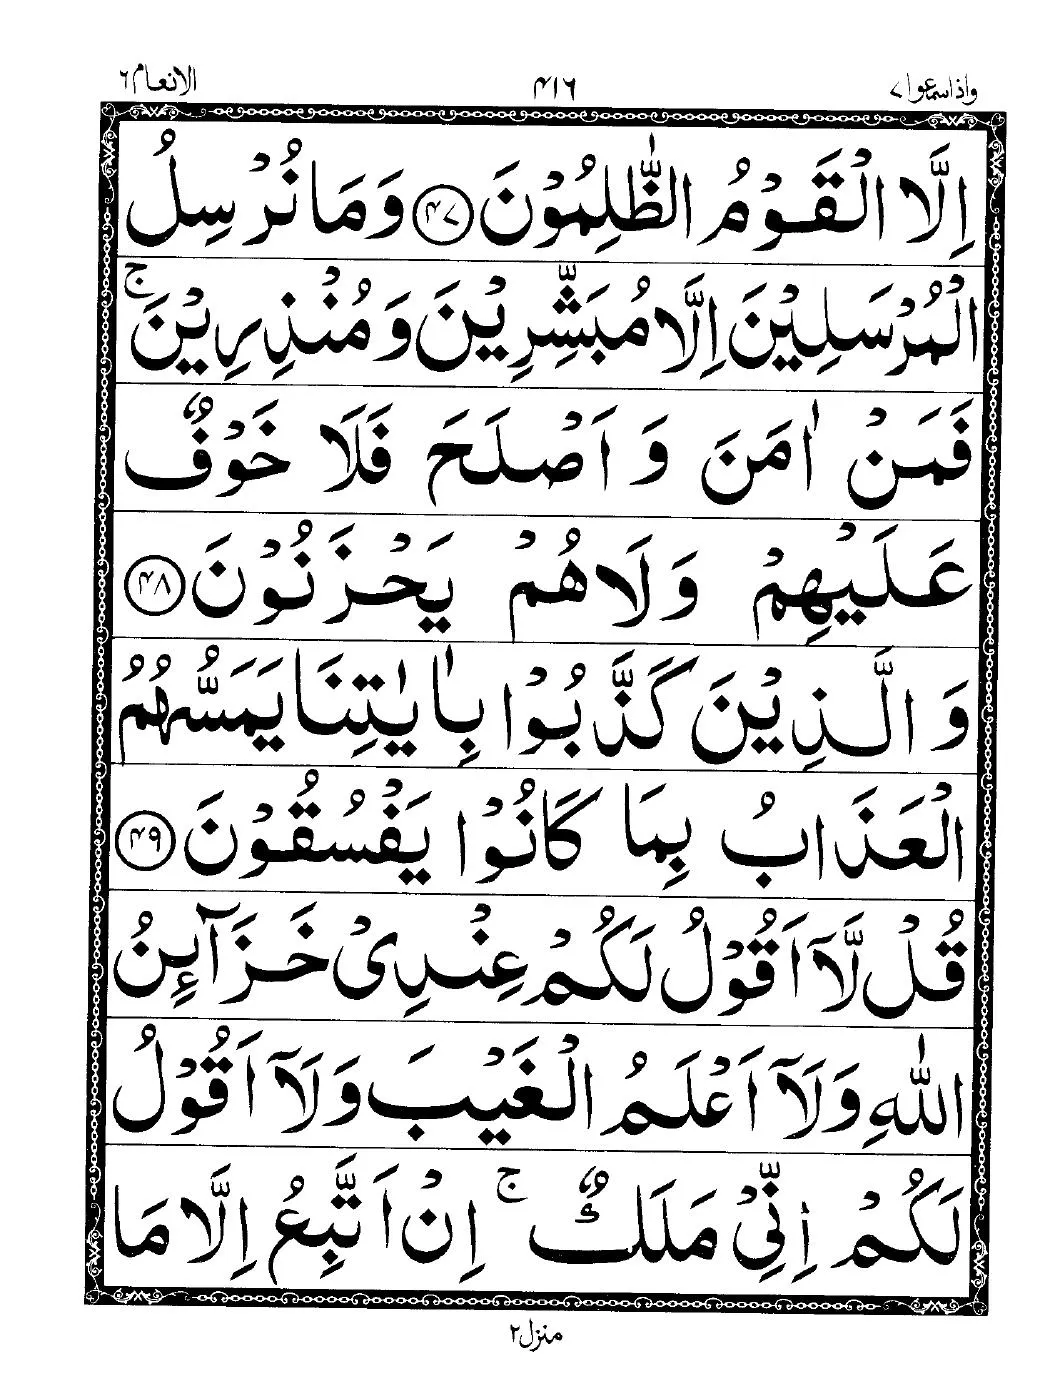 واذاسمعوا۷ ۴۱۶ الانعام۶
اِلَّا الْقَوْمُ الظّٰلِمُوْنَ ۴۷ وَمَا نُرْسِلُ
الْمُرْسَلِيْنَ اِلَّا مُبَشِّرِيْنَ وَمُنْذِرِيْنَ ۚ
فَمَنْ اٰمَنَ وَاَصْلَحَ فَلَا خَوْفٌ
عَلَيْهِمْ وَلَا هُمْ يَحْزَنُوْنَ ۴۸
وَالَّذِيْنَ كَذَّبُوْا بِاٰيٰتِنَا يَمَسُّهُمُ
الْعَذَابُ بِمَا كَانُوْا يَفْسُقُوْنَ ۴۹
قُلْ لَّآ اَقُوْلُ لَكُمْ عِنْدِيْ خَزَآئِنُ
اللّٰهِ وَلَآ اَعْلَمُ الْغَيْبَ وَلَآ اَقُوْلُ
لَكُمْ اِنِّيْ مَلَكٌ ۚ اِنْ اَتَّبِعُ اِلَّا مَا
منزل۲